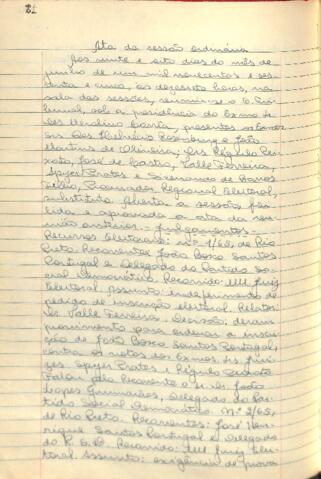 Ata da sessão ordinária
Aos vinte e oito dias do mês de
junho de um mil novecentos e ses-
senta e , às dezesseis horas, na
sala das sessões, reuniu-se o Tri-
bunal, sob a presidência do Exmo Sr
Des , presentes os Exmos
Srs Des e João
Martins de Oliveira, Drs Régulo Pei-
xoto, José de Castro, Valle Ferreira,
Spyer Prates e de Barros
, Procurador Regional Eleitoral,
substituto. Aberta a sessão foi
lida e aprovada a ata da reu-
nião anterior. - Julgamentos -
Recursos Eleitorais: nº 1/62, de Rio
Preto. Recorrentes: João Bosco Santos
Portugal e Delegado do Partido So-
cial Democrático. Recorrido: MM Juiz
Eleitoral. Assunto: indeferimento de
pedido de inscrição eleitoral. Relator:
Dr. Valle Ferreira. Decisão: deram
provimento para ordenar a inscri-
ção de João Bosco Santos Portugal,
contra os votos dos Exmos. Srs. Juí-
zes Spyer Prates e Régulo Peixoto.
Falou pelo recorrente o sr. dr. João
Lopes Guimarães, Delegado do Par-
tido Social Democrático. Nº 2/62,
de Rio Preto. Recorrentes: José Hen-
rique Santos Portugal e Delegado
do P.S.D. Recorrido: MM Juiz Elei-
toral. Assunto: exigência de prova